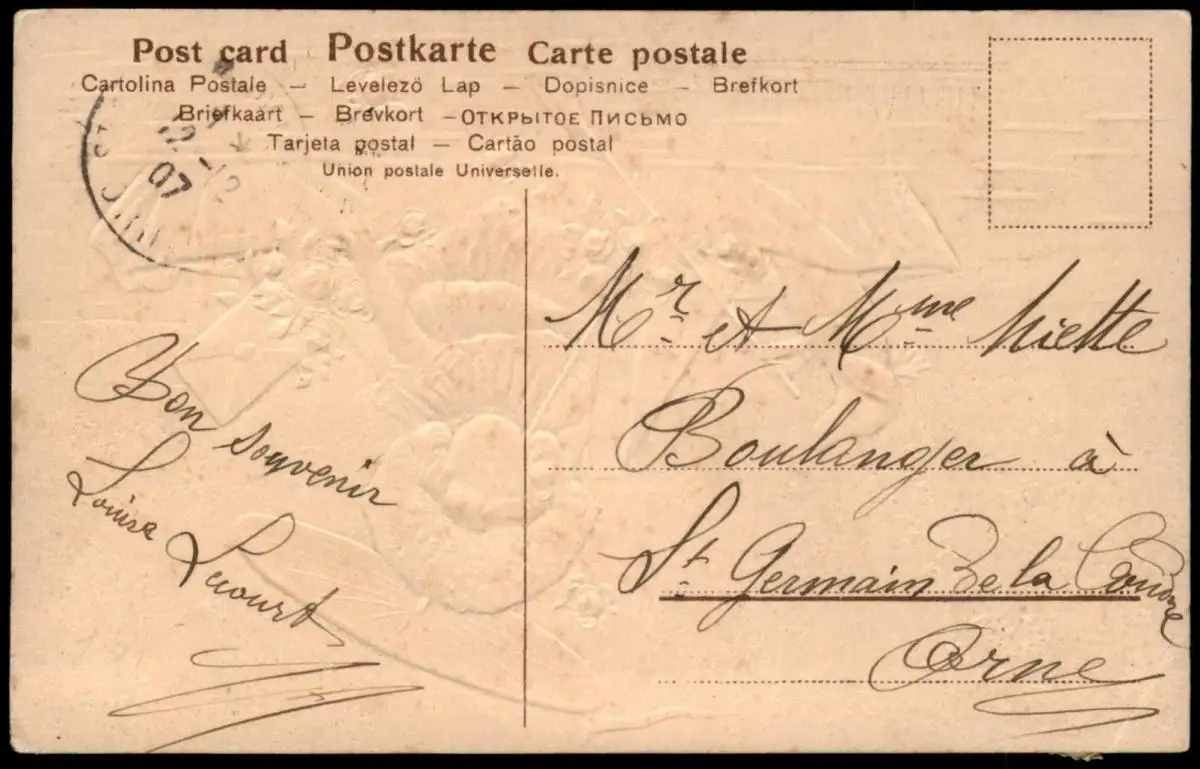 Post card Postkarte Carte postale
Cartolina Postale — Levelezö Lap — Dopisnice — Brefkort
Briefkaart — Brevkort — ОТКРЫТОЕ ПИСЬМО
Tarjeta postal — Cartão postal
Union postale Universelle.
12 - 12
07
Bon souvenir
Louise
Lecourt
Mr et Mme Miette
Boulanger à
St Germain de la Coudre
Orne